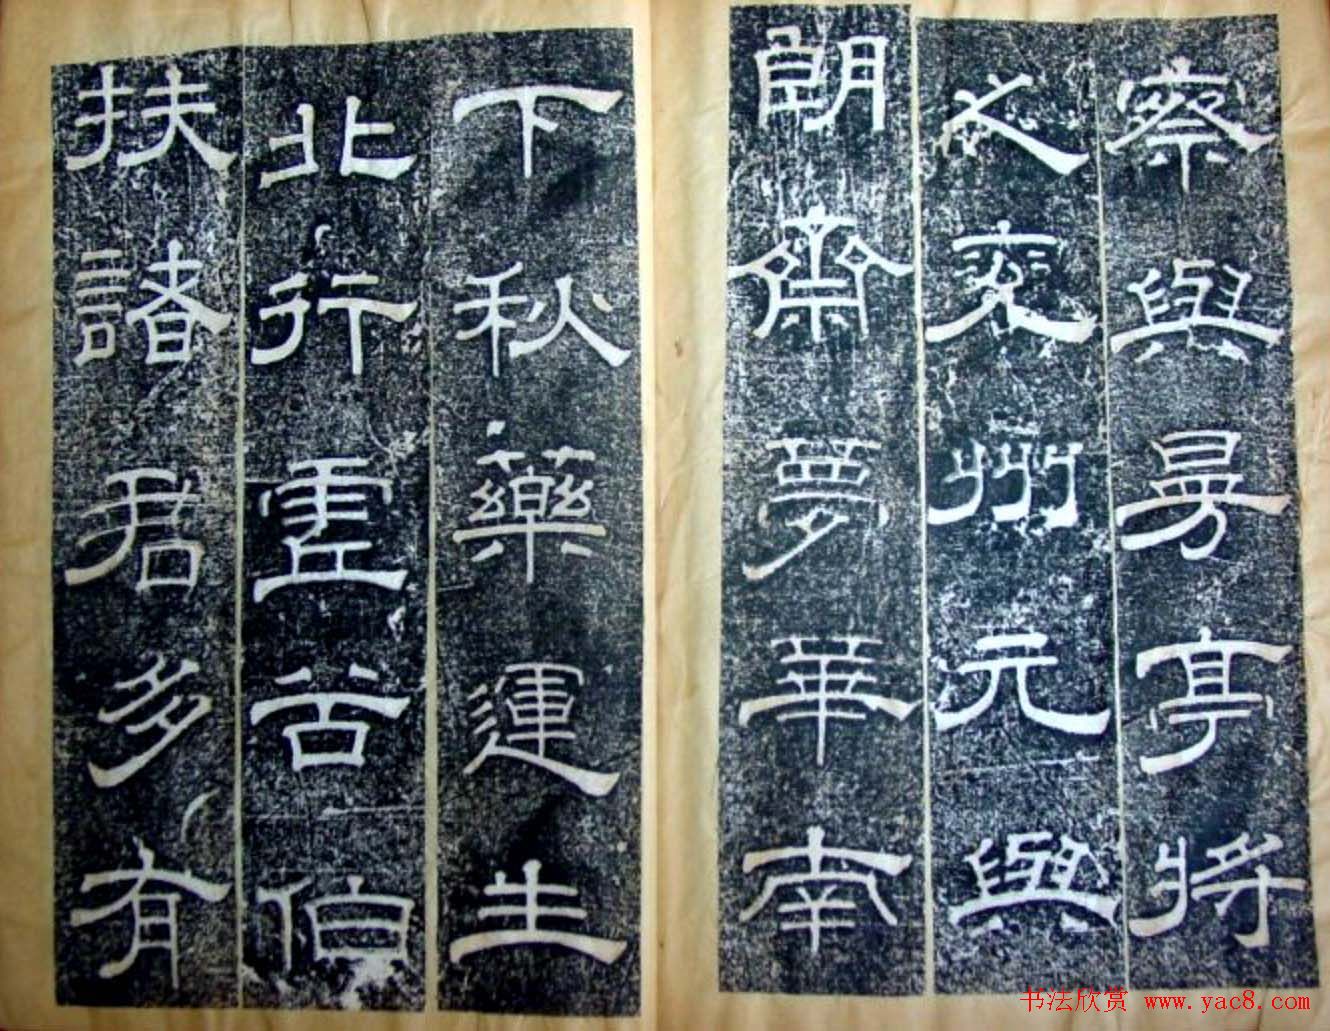 察與曼亭將
之兖州元與
朗齋夢華南
下秋藥運生
北行虛谷伯
扶諸君多有
书法欣赏 www.yac8.com